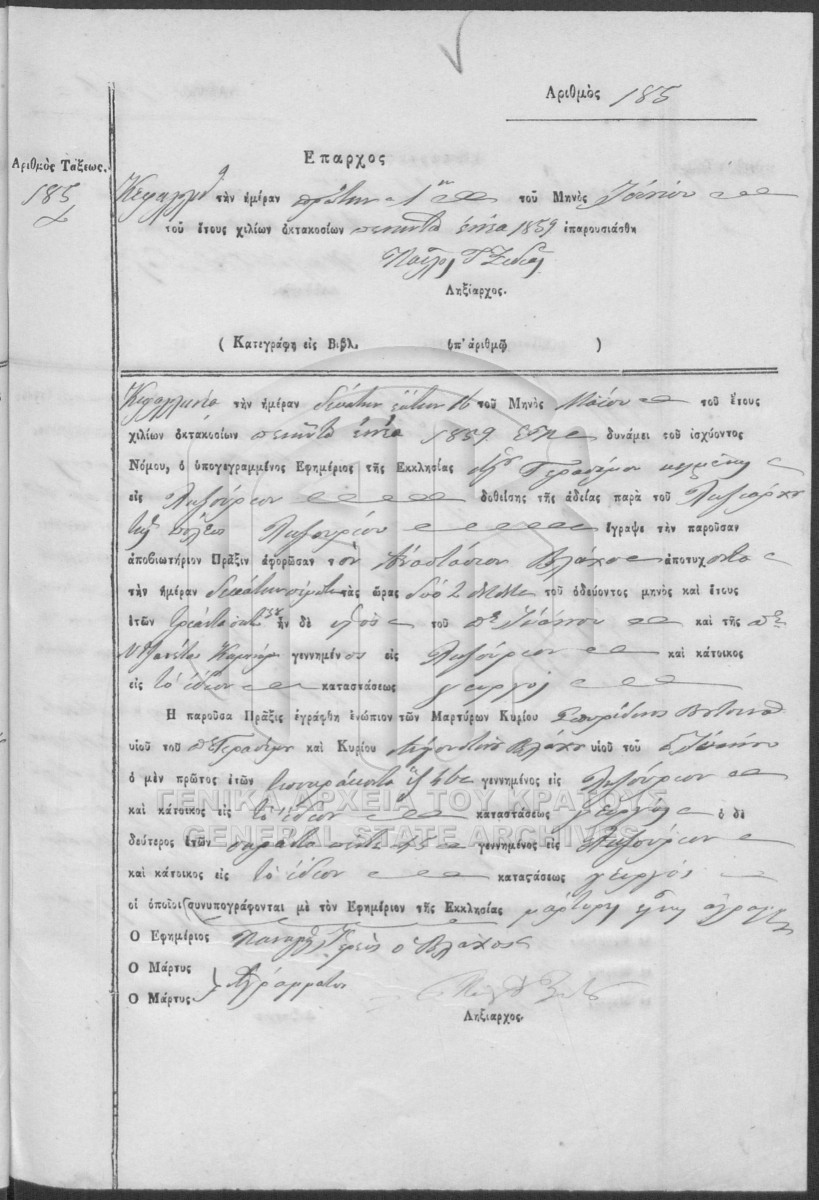 Αριθμὸς 185
Αριθμὸς Τάξεως.
185
Επαρχος
τὴν ἡμέραν πρώτην 1ην τοῦ Μηνὸς Ἰουνίου
τοῦ ἔτους χιλίων ὀκτακοσίων πενῆντα ἐννέα 1859 ἐπαρουσιάσθη
Ληξίαρχος.
( Κατεγράφη εἰς Βιβλ. ὑπ' ἀριθμῷ )
Κεφαλληνία τὴν ἡμέραν δεκάτην ἕκτην 16 τοῦ Μηνὸς Μαΐου τοῦ ἔτους
χιλίων ὀκτακοσίων πενῆντα ἐννέα 1859 δυνάμει τοῦ ἰσχύοντος
Νόμου, ὁ ὑπογεγραμμένος Εφημέριος τῆς Εκκλησίας Γερασίμου
εἰς Ληξούριον δοθείσης τῆς ἀδείας παρὰ τοῦ Ληξιάρχου
τῆς πόλεως Ληξουρίου ἔγραψε τὴν παροῦσαν
ἀποβιωτήριον Πρᾶξιν ἀφορῶσαν τὸν Ἀναστάσιον Βλάχο ἀποτυχοντα
τὴν ἡμέραν δεκάτην πέμπτην τὰς ὥρας δύο 2 τοῦ ὁδεύοντος μηνὸς καὶ ἔτους
ἐτῶν τριάντα ἦν δὲ υἱὸς τοῦ πε Ἰωάννου καὶ τῆς
γεννημένος εἰς Ληξούριον καὶ κάτοικος
εἰς τὸ ἴδιον καταστάσεως γεωργός
Η παροῦσα Πρᾶξις ἐγράφθη ἐνώπιον τῶν Μαρτύρων Κυρίου Σπυρίδωνος
υἱοῦ τοῦ πε Γερασίμου καὶ Κυρίου Βλάχου υἱοῦ τοῦ Ἰωάννου
ὁ μὲν πρῶτος ἐτῶν σαράκοντα ἕξ 46 γεννημένος εἰς Ληξούριον
καὶ κάτοικος εἰς τὸ ἴδιον καταστάσεως γεωργός ὁ δὲ
δεύτερος ἐτῶν σαράντα πέντε 45 γεννημένος εἰς Ληξούριον
καὶ κάτοικος εἰς τὸ ἴδιον καταστάσεως γεωργός
οἱ ὁποῖοι συνυπογράφονται μὲ τὸν Εφημέριον τῆς Εκκλησίας
Ο Εφημέριος Ἱερεὺς ὁ Βλάχος
Ο Μάρτυς
Ο Μάρτυς Ἀγράμματοι
Ληξίαρχος.
ΓΕΝΙΚΑ ΑΡΧΕΙΑ ΤΟΥ ΚΡΑΤΟΥΣ
GENERAL STATE ARCHIVES